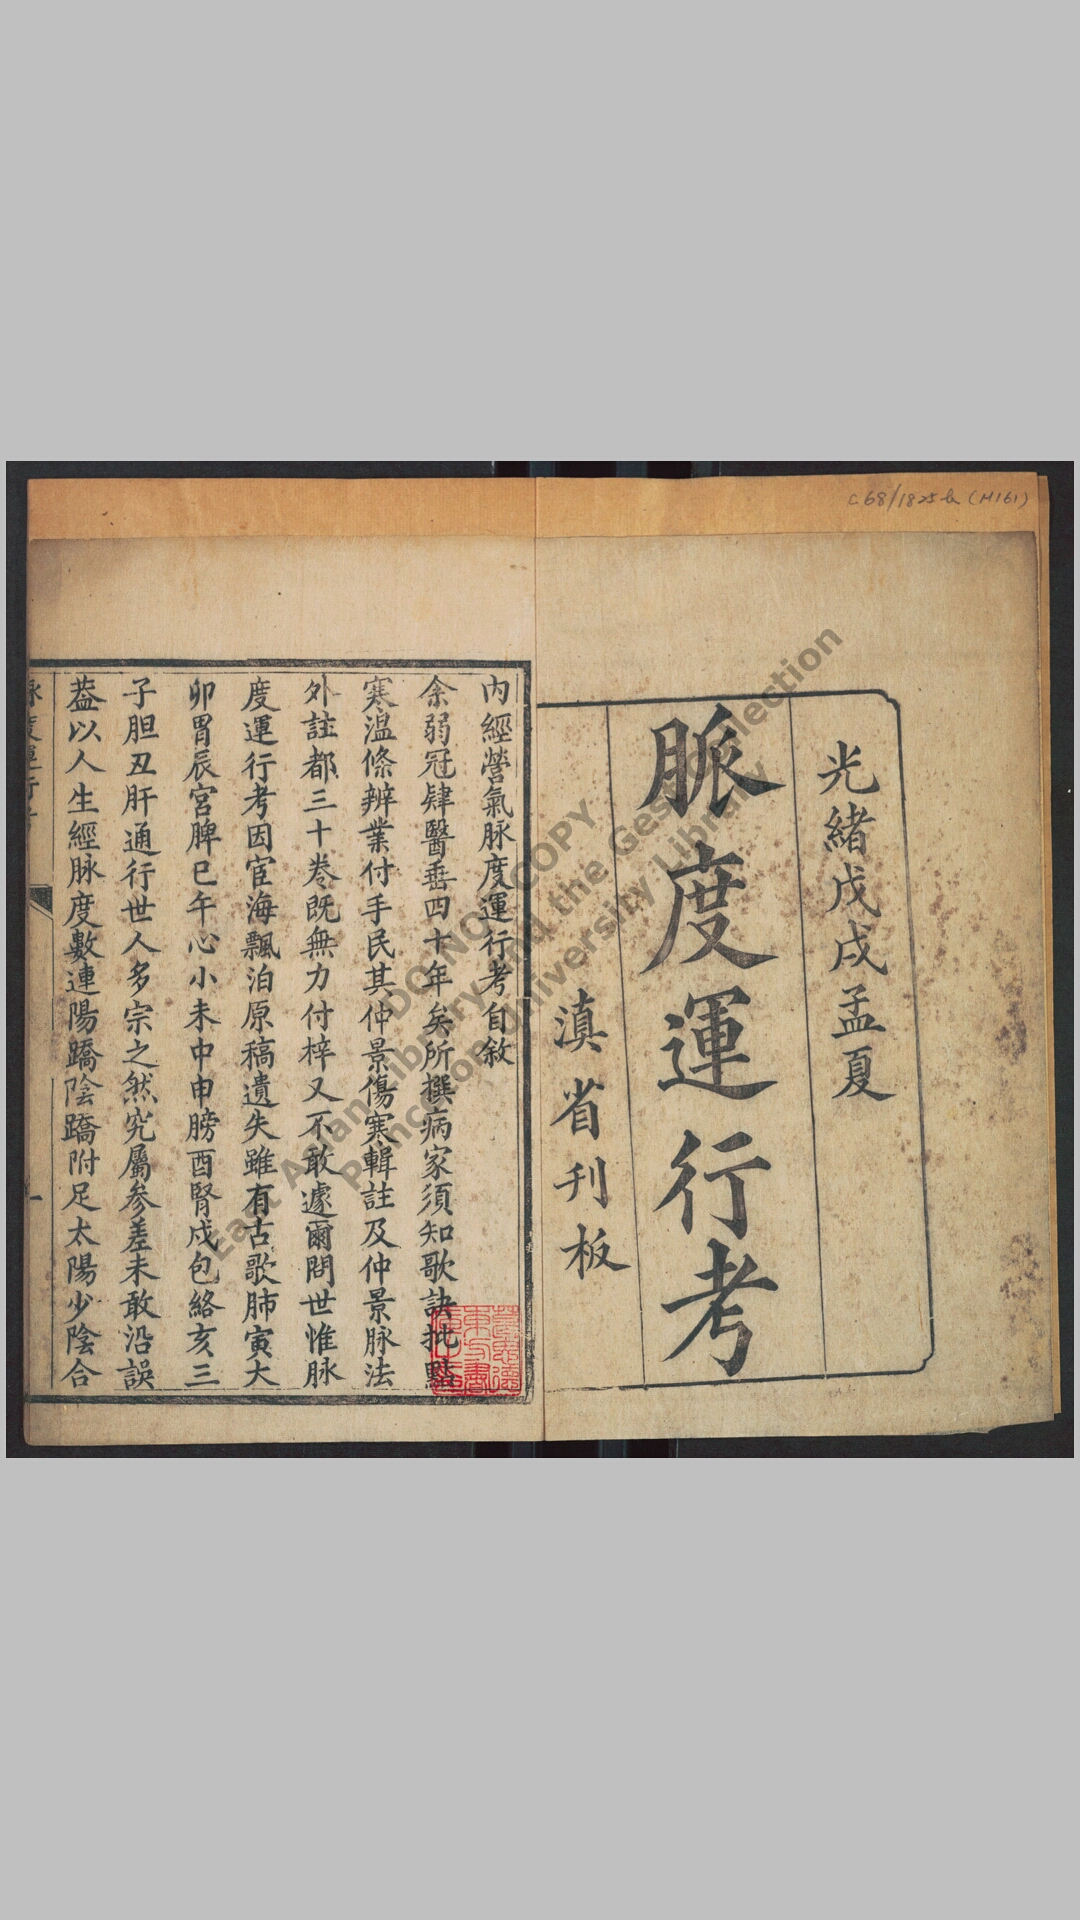 C68/1825b (H161)
光緒戊戌孟夏
脈度運行考
滇省刊板
內經營氣脉度運行考自敘
余弱冠肄醫垂四十年矣所撰病家須知歌訣批點
寒溫條辨業付手民其仲景傷寒輯註及仲景脉法
外註都三十卷既無力付梓又不敢遽爾問世惟脉
度運行考因宦海飄泊原稿遺失雖有古歌肺寅大
卯胃辰宮脾巳午心小未中申膀酉腎戌包絡亥三
子胆丑肝通行世人多宗之然究屬參差未敢沿誤
葢以人生經脉度數連陽蹻陰蹻附足太陽少陰合
脉度運行考
一
DO NOT COPY
East Asian Library and the Gest Collection
Princeton University Library